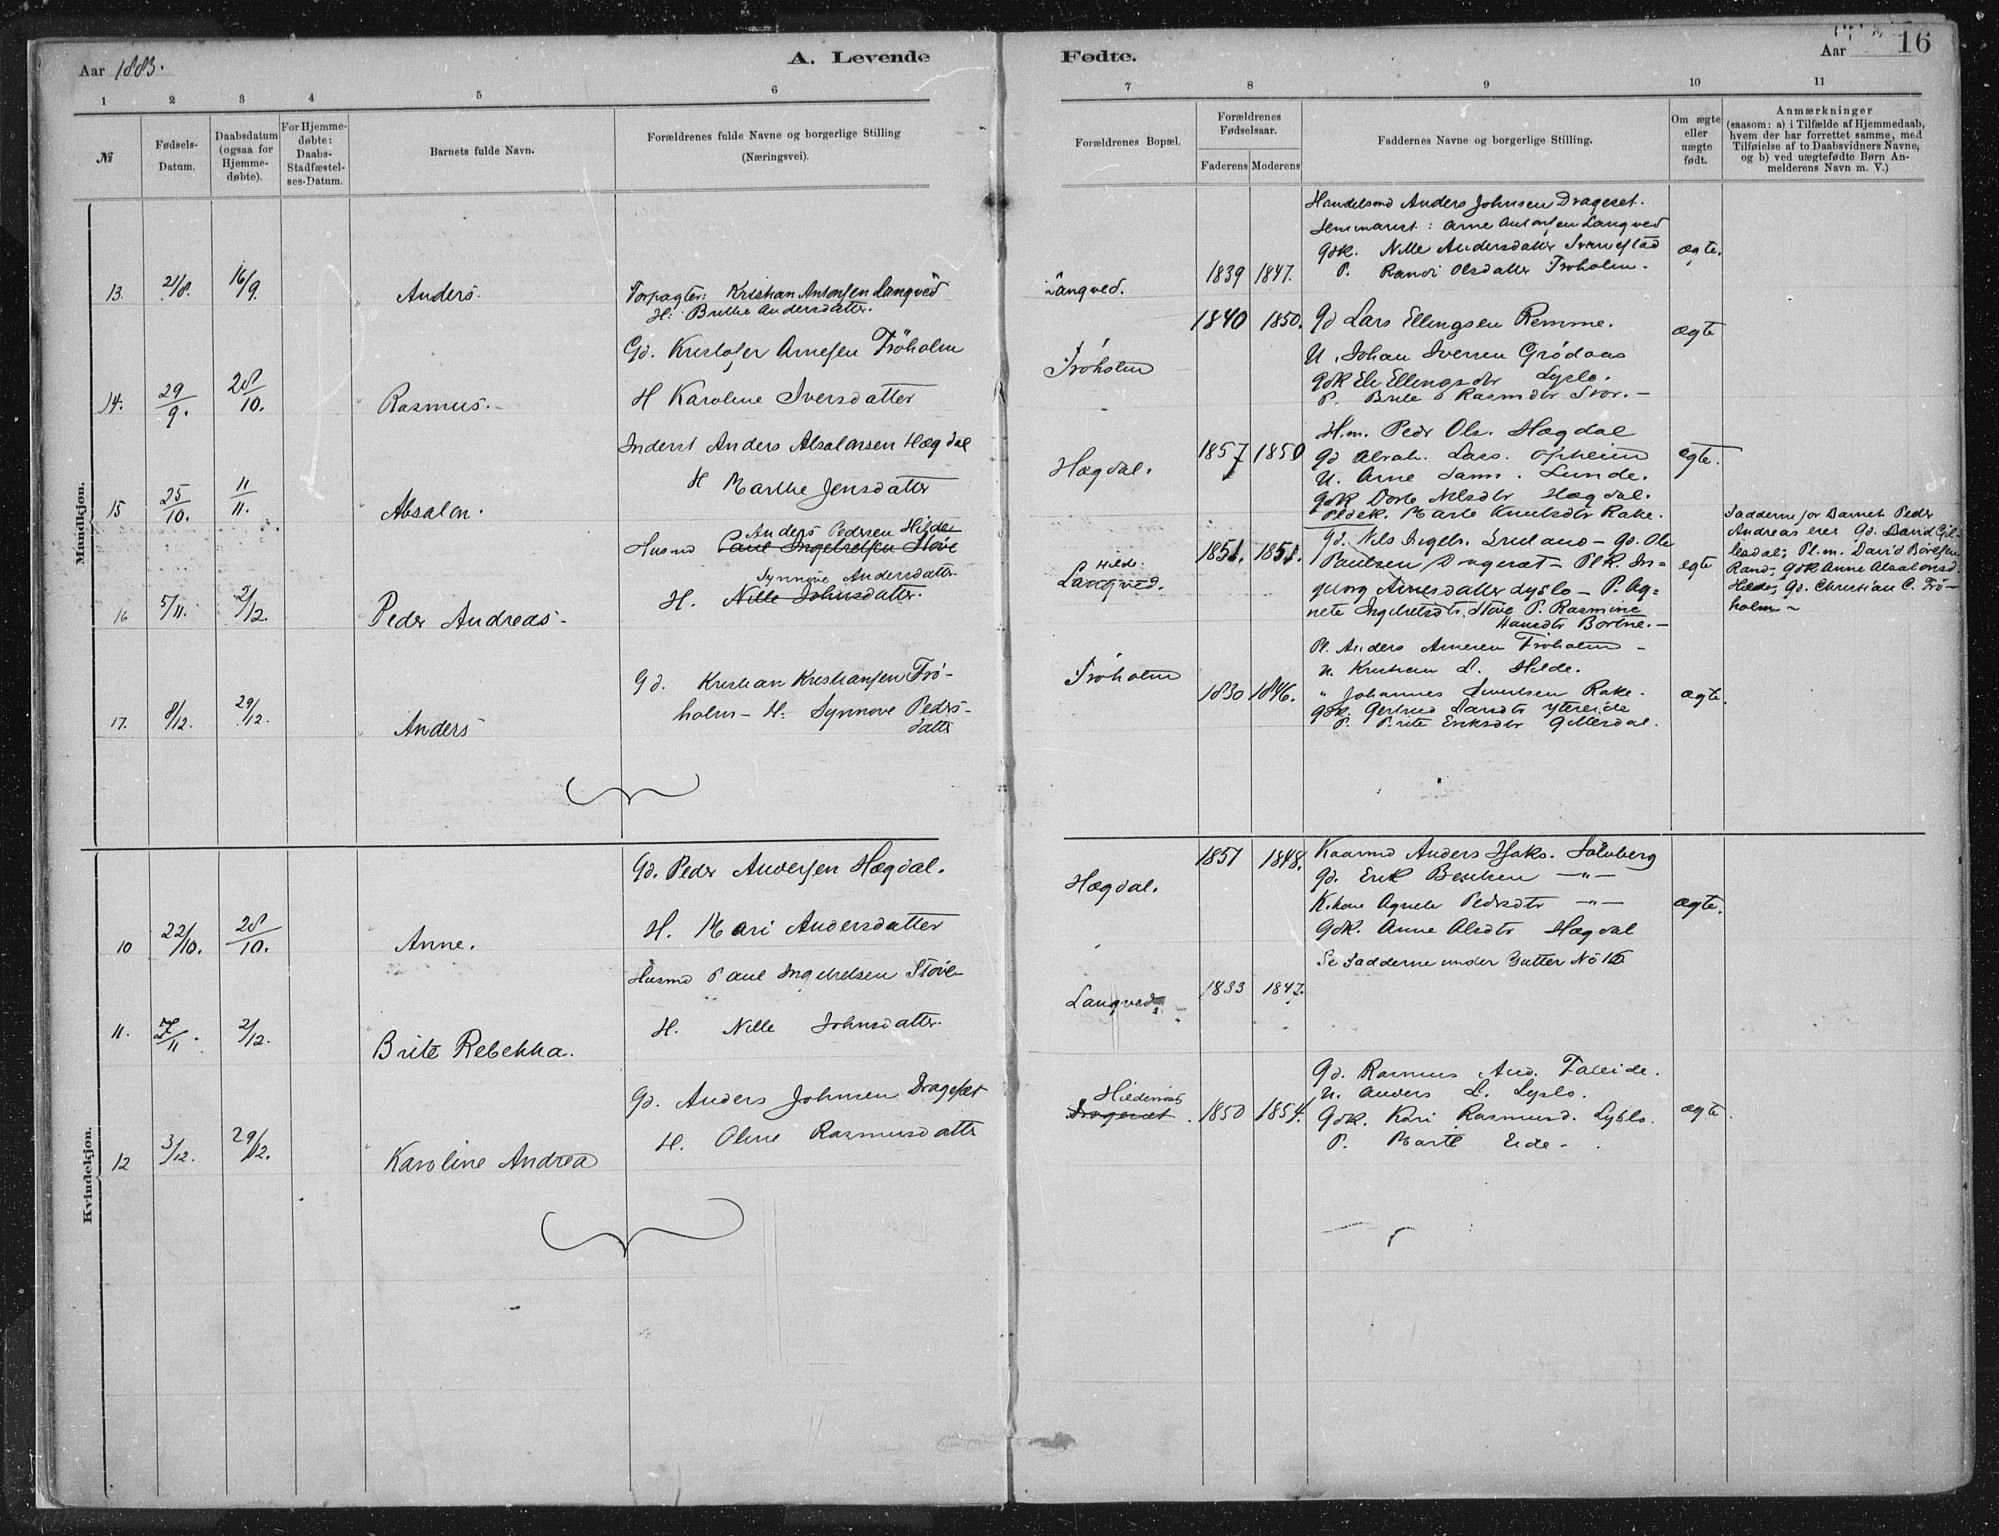 Aar 1883.
A. Levende
Fødte.
Aar
16
1 2 3 4 5 6 7 8 9 10 11
№
Fødsels-
Datum.
Daabsdatum
(ogsaa for
Hjemme-
døbte).
For Hjemme-
døbte:
Daabs-
Stadfæstel-
ses-Datum.
Barnets fulde Navn.
Forældrenes fulde Navne og borgerlige Stilling
(Næringsvei).
Forældrenes Bopæl.
Forældrenes
Fødselsaar.
Faderens Moderens
Faddernes Navne og borgerlige Stilling.
Om ægte
eller
uægte
født.
Anmærkninger
(saasom: a) i Tilfælde af Hjemmedaab,
hvem der har forrettet samme, med
Tilføielse af to Daabsvidners Navne,
og b) ved uægtefødte Børn An-
melderens Navn m. V.)
Mandkjøn.
13. 21/8. 16/9. Anders.
Forpagter: Kristian Antonsen Langved
H: Brithe Andersdatter.
Langved.
1839 1847.
Handelsmd Anders Johnsen Drageset.
Seminarist: Arne Antonsen Langved
Gdk. Nille Andersdatter
P. Randi Olsdatter Troholm.
ægte.
14. 29/9. 28/10. Rasmus.
Gd. Kristofer Arnesen Troholm
H Karoline Iversdatter
Troholm
1840 1850.
Gd Lars Ellingsen Remme.
U. Johan Iversen Grodaas
Gdk Eli Ellingsdtr Lyslo.
P. Brite Rasmdtr Stor.
ægte
15 25/10. 11/11. Absalon.
Inderst Anders Absalonsen Hægdal
H Marthe Jensdatter
Hægdal.
1857 1850
H.m. Peder Ols. Hægdal
Gd Abrah. Lars. Opheim
U. Arne Lunde.
Gdk Dorte Nilsdtr Hægdal.
Marte Knutsdtr Rake.
ægte.
16 5/11. 2/12. Peder Andreas
Anders Pedersen Hilde
Husmd Paul Ingebretsen Støve
Synnøve Andersdatter.
H. Nille Johnsdatter.
Hilde.
Langved.
1851. 1851.
Gd. Nils Ingebr. - Gd. Ole
Paulsen Drageset - Plk. In-
geborg Arnesdatter Lyslo - P. Ag-
nete Ingebretsdtr. Støve P. Rasmine
Hansdtr Bortne.
ægte
Fadderne for Barnet Peder
Andreas erer Gd. David Gil-
lesdal; Pl.m. David Børesen
Rand; Gdk Anne Absalonsd.
Hilde; Gd. Christian C. Tro-
holm
17. 8/12. 29/12. Anders
Gd. Kristian Kristiansen Tro-
holm - H: Synnøve Peders-
datter
Troholm
1830 1846.
Pl. Anders Arnesen Troholm
U. Kristian L. Hilde.
" Johannes Sivertsen Rake.
Gdk. Gertrud Larsdtr Ytreeide
P. Brite Eriksdtr Gillesdal.
ægte.
Kvindekjøn.
10 22/10. 28/10. Anne.
Gd. Peder Andersen Hægdal.
H. Mari Andersdatter
Hægdal.
1851 1848.
Kaarmd Anders Isaks. Solvberg
Gd. Erik Bentsen — " —
K.kone Agnete Pedersdtr — " —
Gdk. Anne Alsdtr Hægdal
ægte.
11. 7/11. 2/12. Brite Rebekka.
Husmd Paul Ingebretsen Støve
H. Nille Johnsdatter.
Langved
1833 1847.
Se Fadderne under Gutter No 16
12 3/12. 29/12. Karoline Andrea
Gd. Anders Johnsen Drageset
H. Oline Rasmusdatter
Hildenæs
Drageset.
1850 1854.
Gd. Rasmus And. Faleide.
U. Anders L. Lyslo.
Gdk. Kari Rasmusd. Lyslo.
P. Marte Eide
ægte.